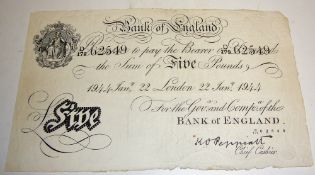 Bank of England
62549 to pay the Bearer on 62549
the Sum of Five Pounds.
1944 Jany. 22 London 22 Jany. 1944
For the Govr. and Compa. of the
Five
BANK of ENGLAND.
K O Peppiatt
Chief Cashier